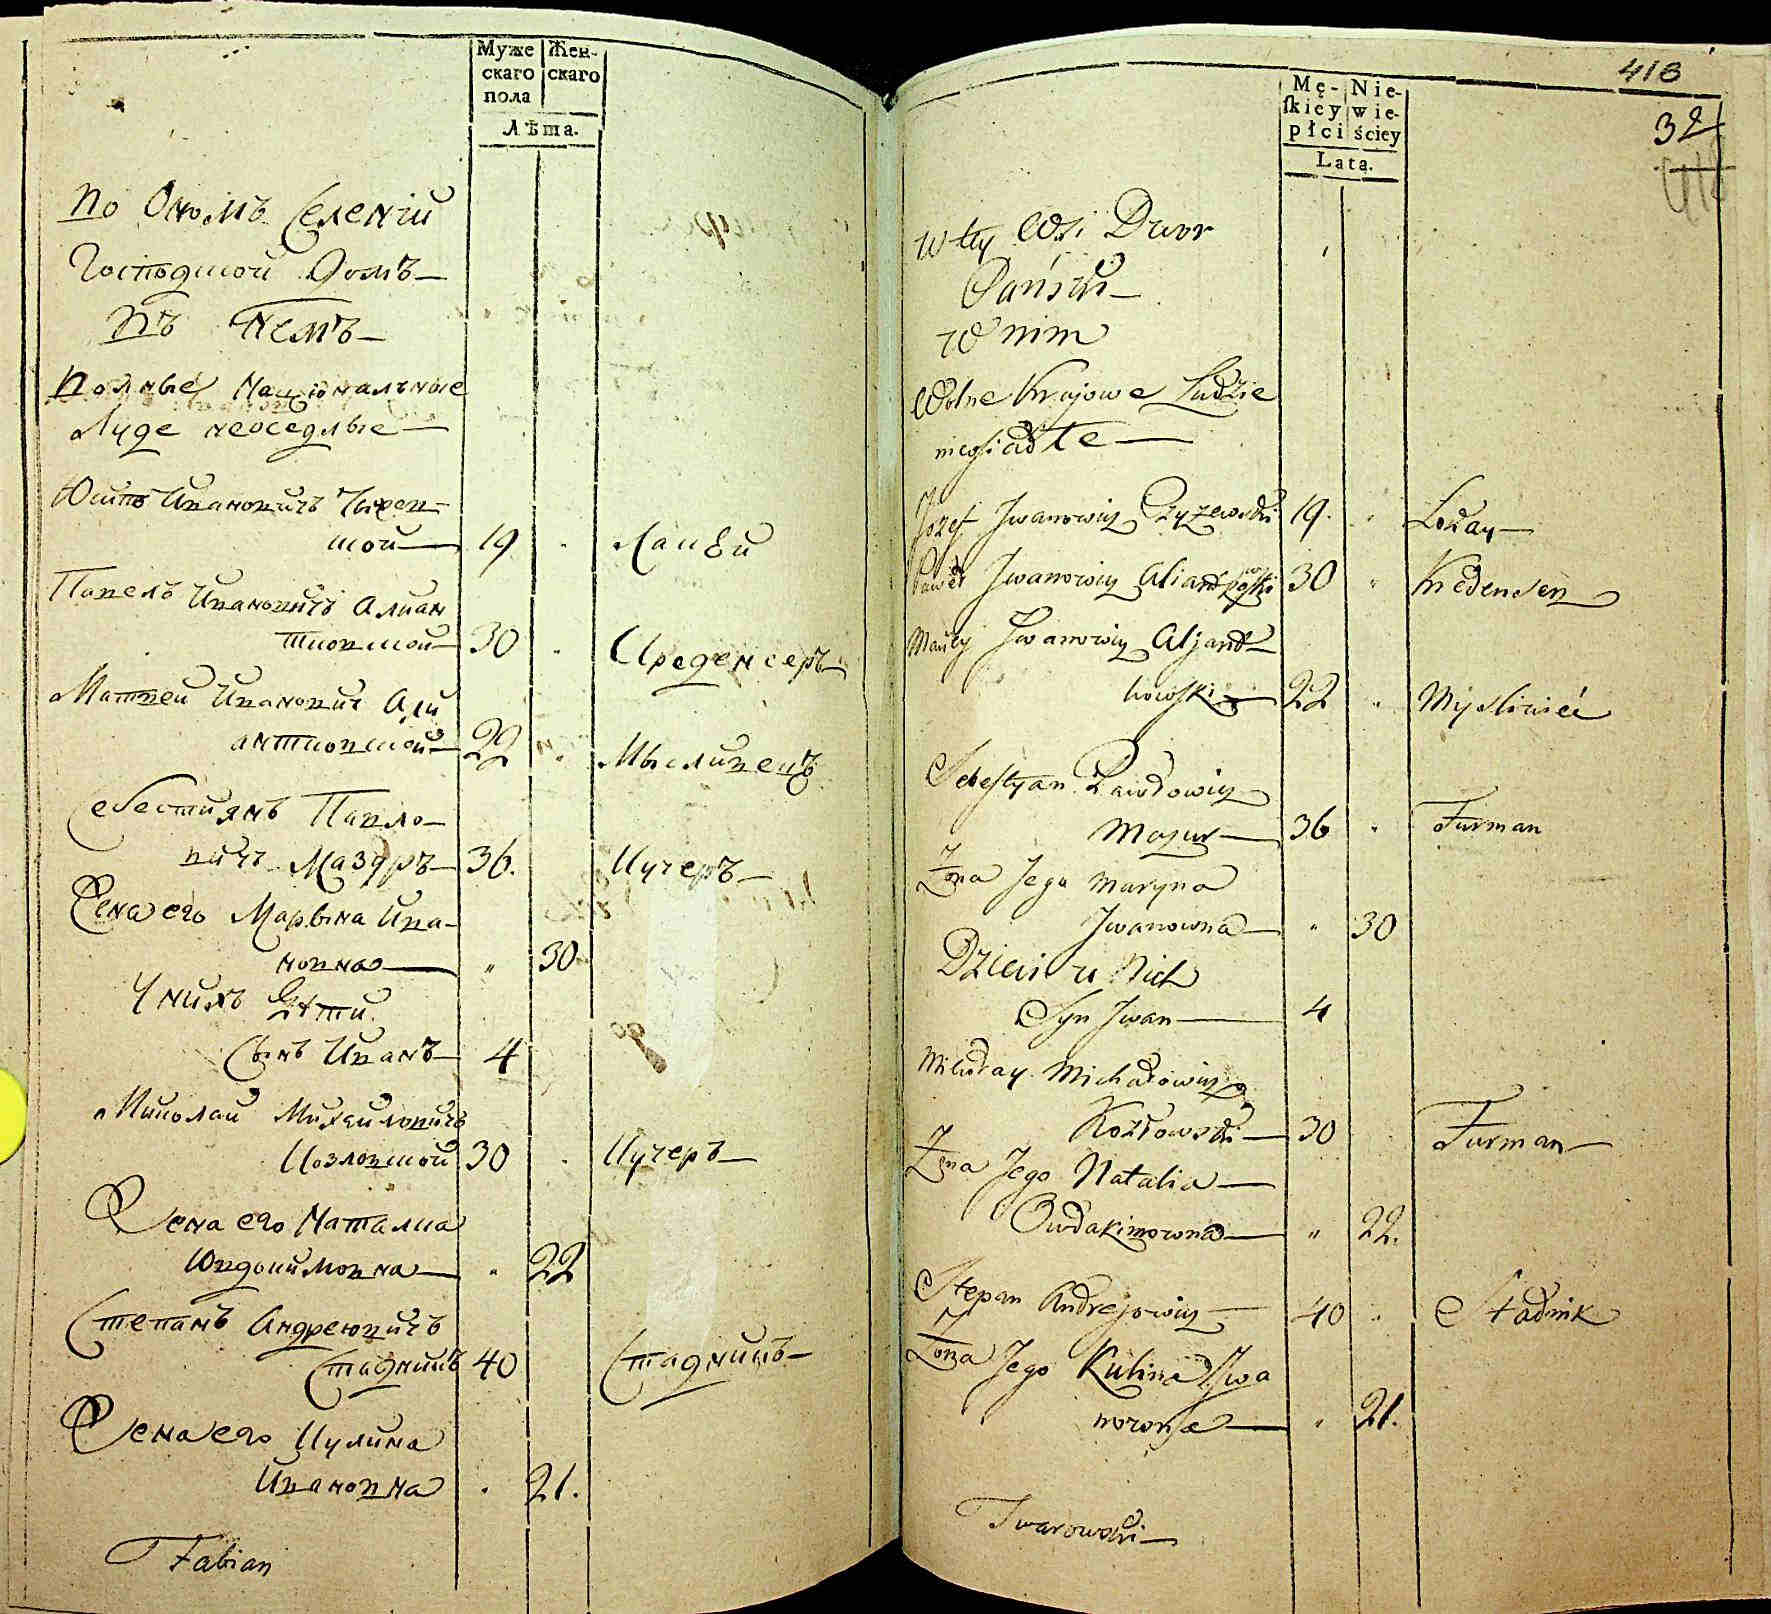 Муже
скаго
пола
Жен-
скаго
Лѣта.
по Ономъ Селенiи
Господской Домъ
въ немъ
вольные Нацiональные
Люде неоседлые
Иванович
ской 19 Лакей
Павелъ Ивановичъ Алиан
товской 30 Креденсеръ
Матвей Иванович Али
антковской 22 Мысливецъ
Себестиянъ Павло-
вичъ Мазуръ 36. Кучеръ
Жена его Марына Ива-
новна " 30
У нихъ Дѣти
Сынъ Иванъ 4
Николай Михайловичъ
Козловской 30 Кучеръ
Жена его Наталиа
Овдокимовна " 22
Степанъ Андреювичъ
Стадникъ 40 Стадникъ
Жена его Кулина
Ивановна " 21.
Fabian
418
32
Mę-
ſkiey
płci
Nie-
wie-
ściey
Lata.
w tey Wsi Dwor
Pański
W nim
Wolne Krajowe Ludzie
nieosiadłe
Jozef Iwanowicz Czyżewski 19. " Lokay
Paweł Iwanowicz 30 " Kredenserz
Iwanowicz Aljant
kowski 22 " Mysliwiec
Sebestyan Pawłowicz
Mazur 36 " Furman
Żona Jego Maryna
Iwanowna " 30
Dzieci u Nich
Syn Iwan 4
Mikołay Michałowicz
Kozłowski 30 Furman
Żona Jego Natalia
Owdakimowna " 22.
Stepan Andrejowicz 40 " Stadnik
Żona Jego Kulina Iwa
nowna " 21.
Twarowski